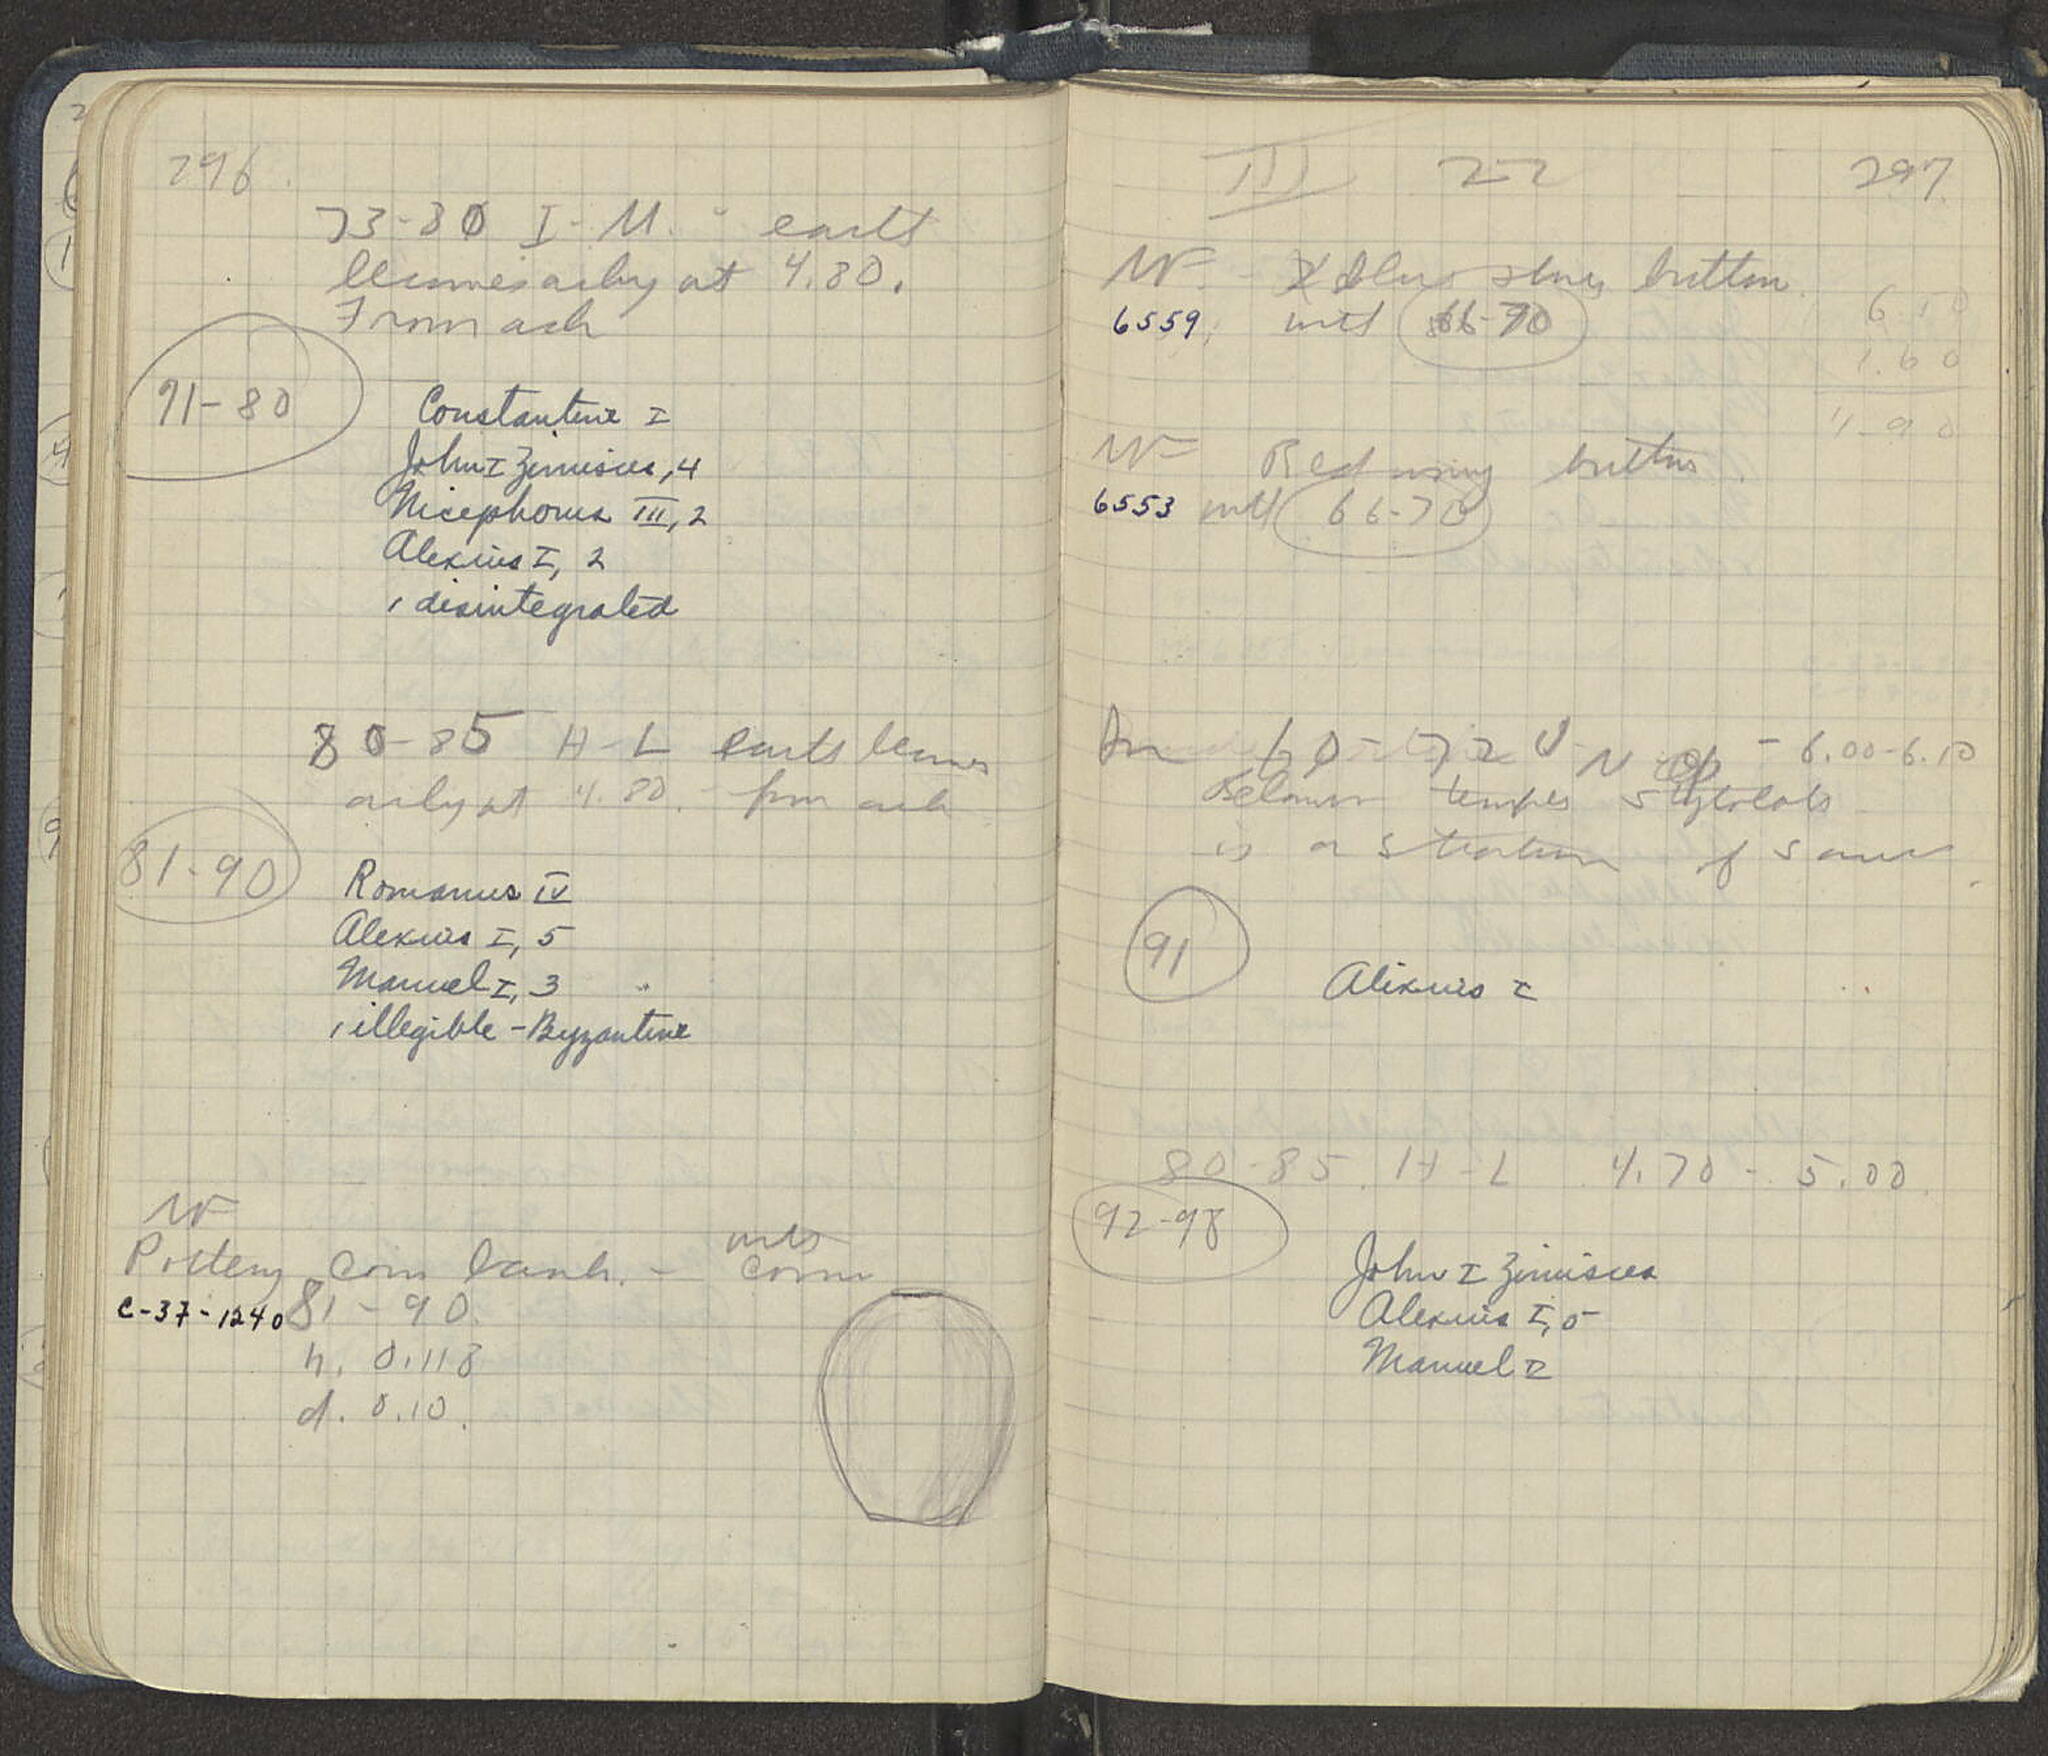 296.
73-80 I-M. - earth
becomes ashy at 4.80.
From ash
71-80
Constantine I
John I Zimisces, 4
Nicephorus III, 2
Alexius I, 2
1 disintegrated
80-85 H-L earth becomes
ashy at 4.80. - from ash
81-90
Romanus IV
Alexius I, 5
Manuel I, 3
1 illegible - Byzantine
W
Pottery coin bank. - with
coins
C-37-1240 81-90.
h. 0.118
d. 0.10.
III 22 297.
W - blue button.
6559 with 66-70
6.50
1.60
4.90
W Red button
6553 with 66-70
60-72 N - 6.00-6.10
Below temple stylobate
is a stratum of
91
Alexius I
80-85. H-L 4.70-5.00.
92-98
John I Zimisces
Alexius I, 5
Manuel I